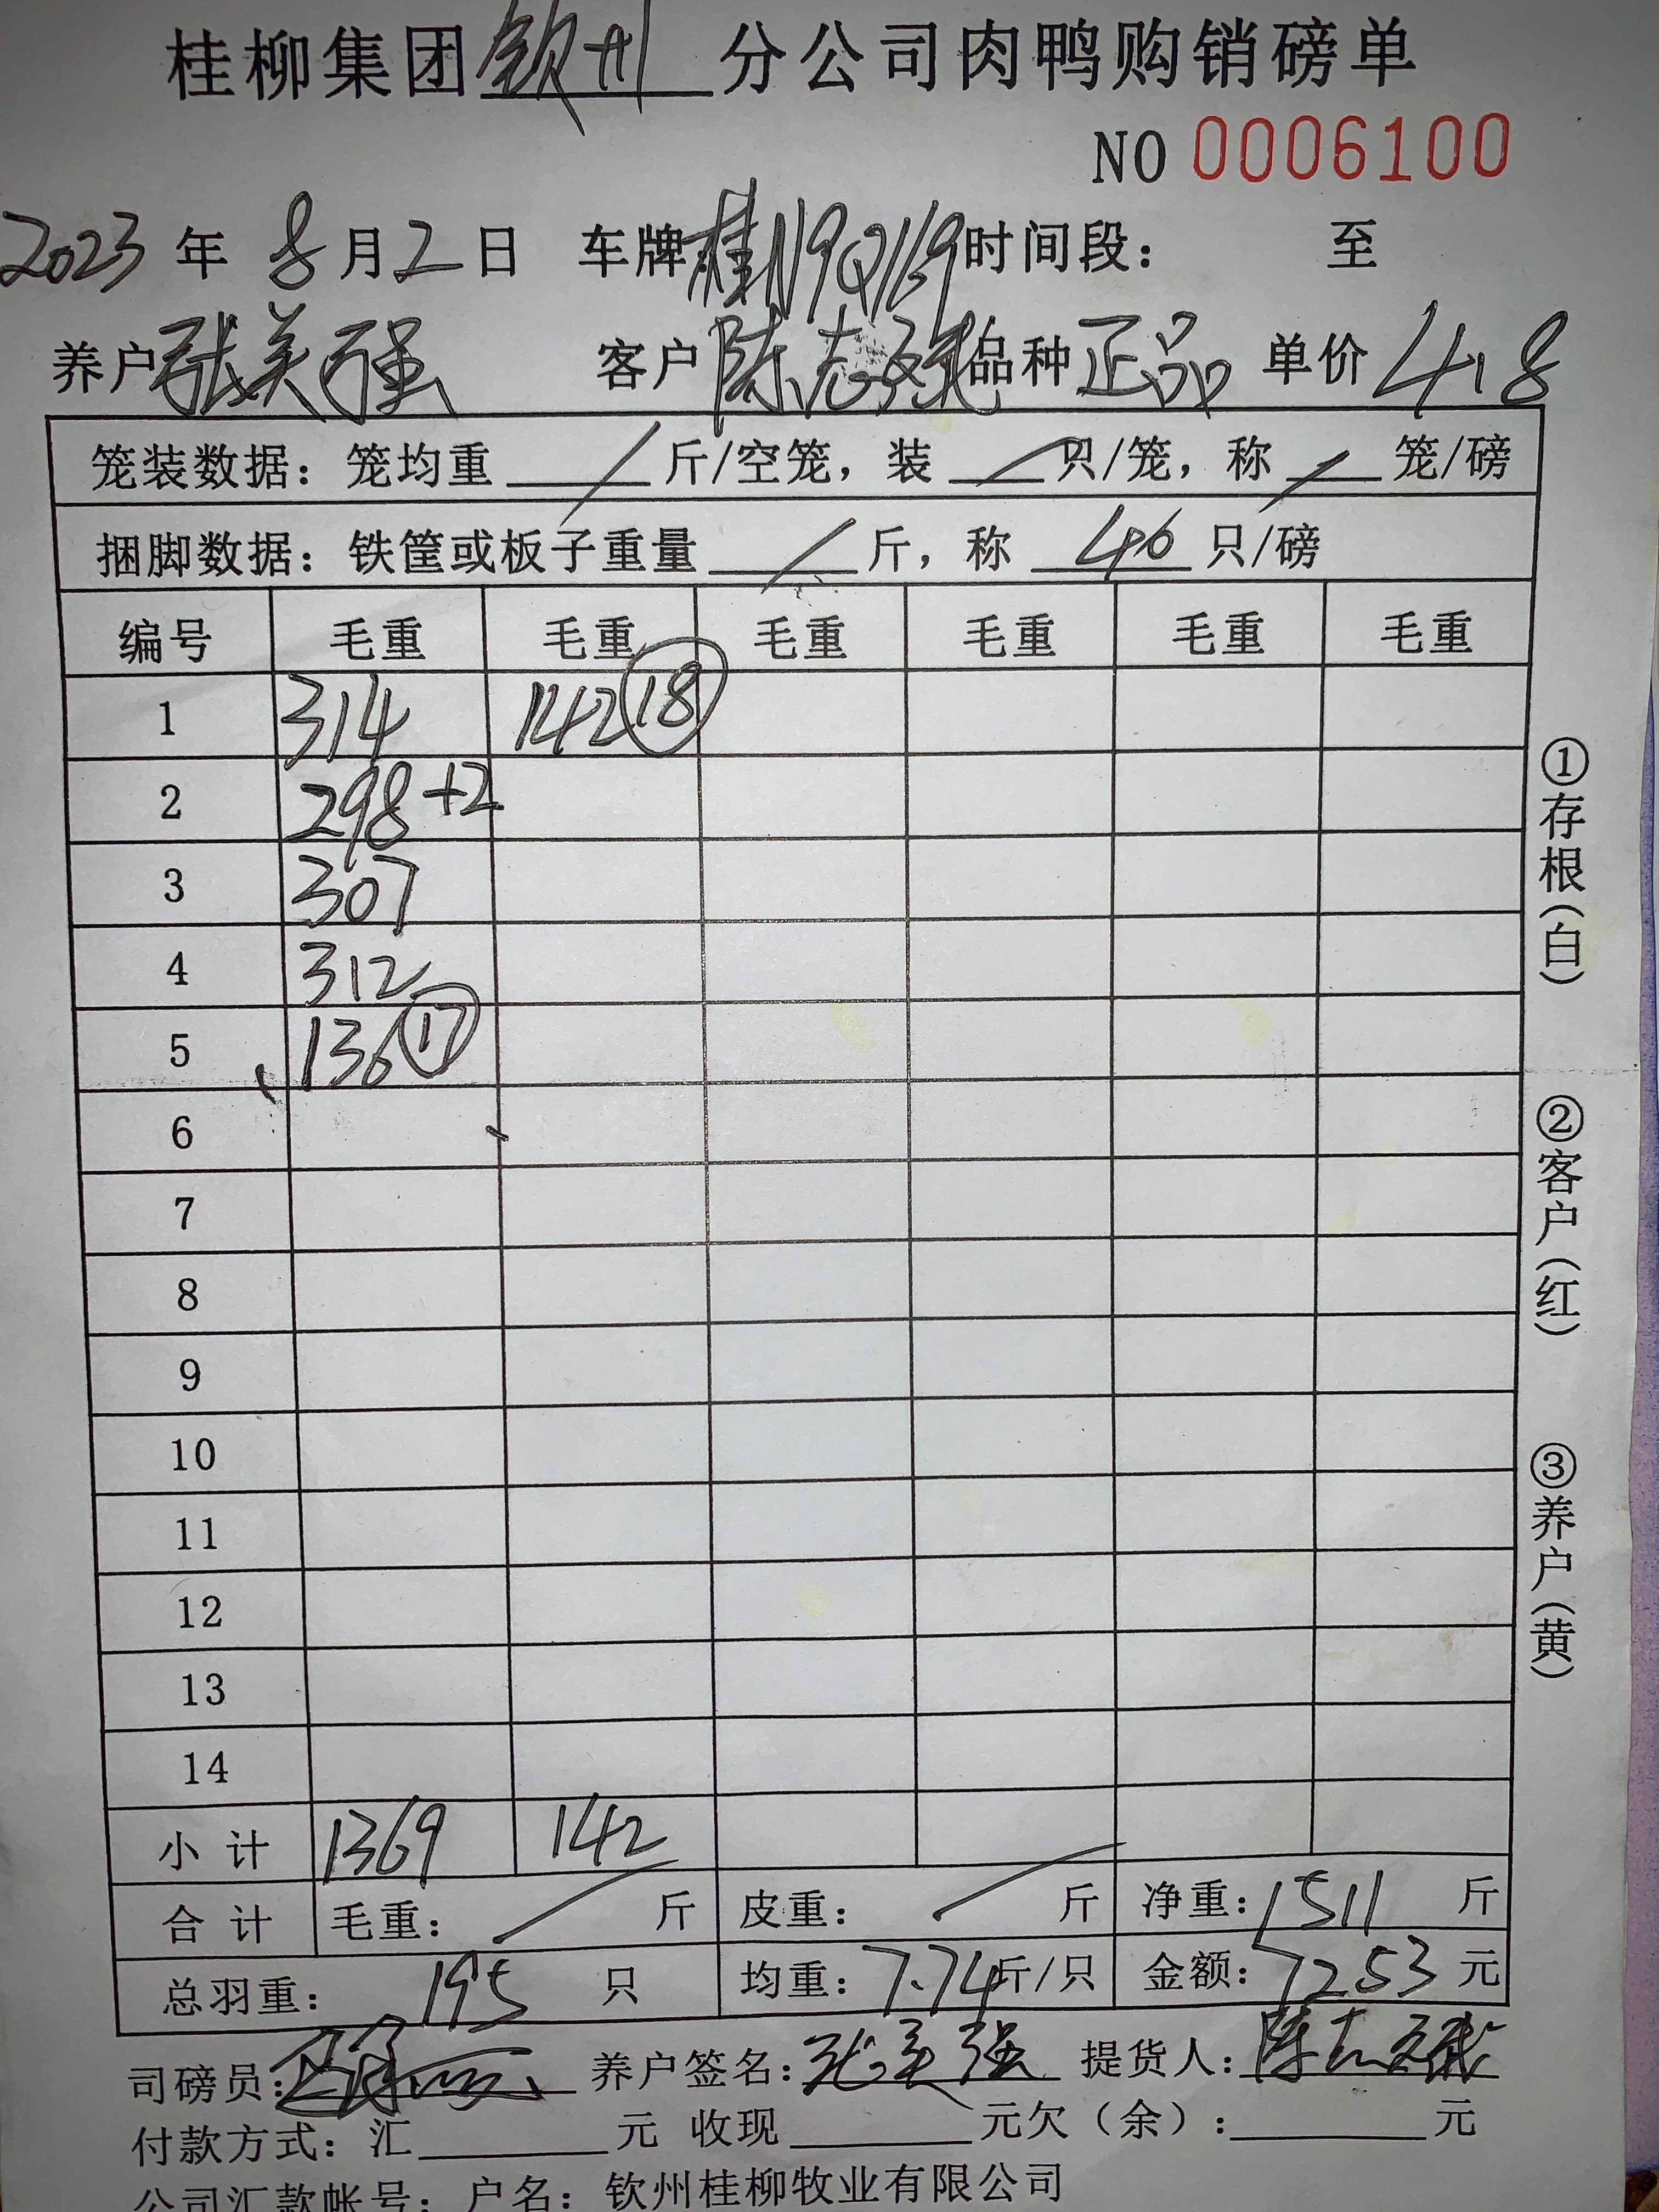 桂柳集团钦州分公司肉鸭购销磅单
NO 0006100
2023年8月2日 车牌桂N9Q169时间段： 至
养户张美强 客户陈志强品种正品 单价4.8
笼装数据：笼均重/斤/空笼，装/只/笼，称/笼/磅
捆脚数据：铁筐或板子重量/斤，称46只/磅
编号 毛重 毛重 毛重 毛重 毛重 毛重
1 314 142⑱
2 298+2
3 307
4 312
5 136⑰
6
7
8
9
10
11
12
13
14
小计 1369 142
合计 毛重：/斤 皮重：/斤 净重：1511斤
总羽重：195只 均重：7.74斤/只 金额：7253元
司磅员： 养户签名：张美强 提货人：陈志强
付款方式：汇______元 收现______元欠（余）：______元
公司汇款帐号：户名：钦州桂柳牧业有限公司
①存根（白）
②客户（红）
③养户（黄）